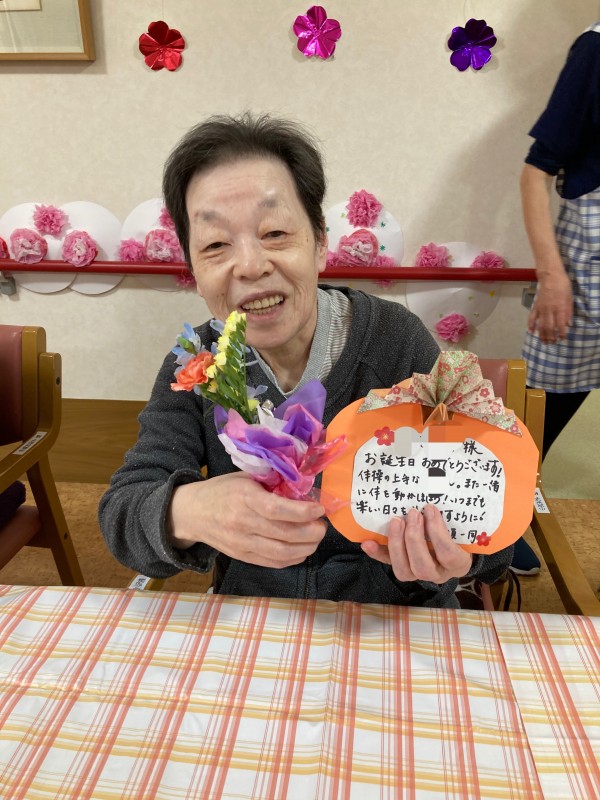 様
お誕生日おめでとうございます!
体操の上手な 。また一緒
に体を動かしましょう!いつまでも
楽しい日々を ますように!
一同